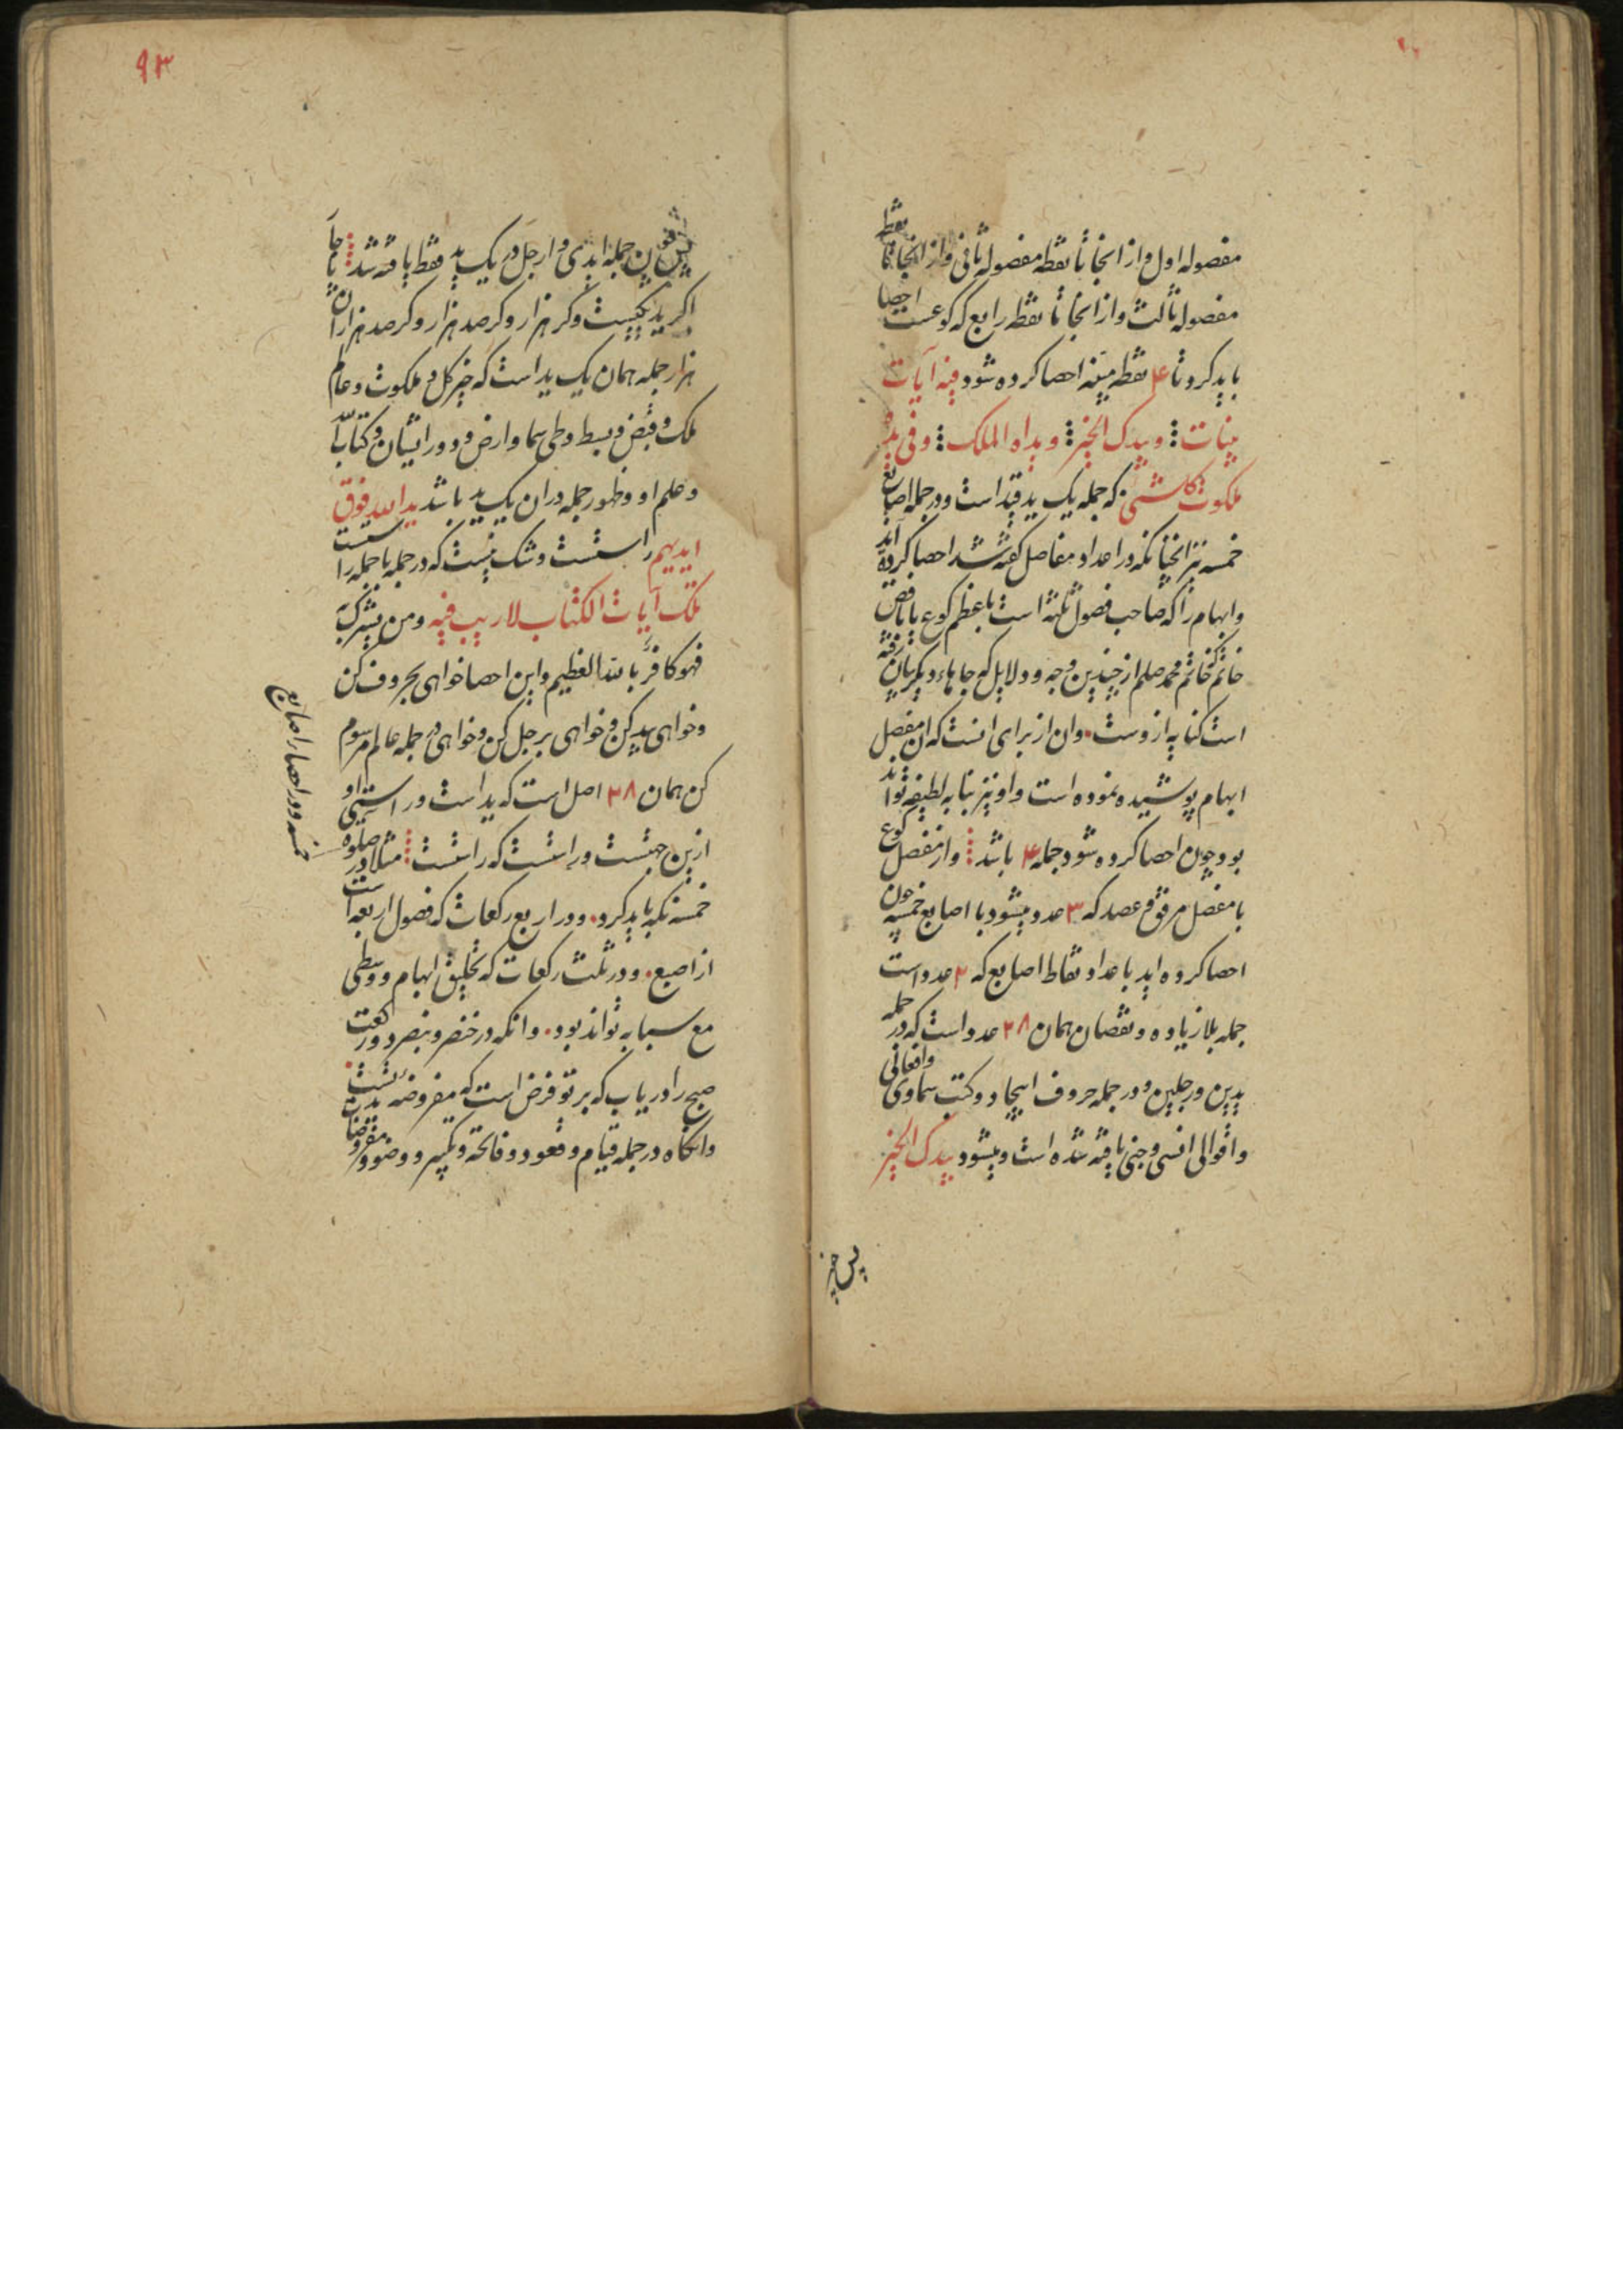 مفصوله اول و از انجا تا نقطه مفصوله ثانی و از انجا تا نقطه
مفصوله ثالث و از انجا تا نقطه رابع که کوعست احصا
باید کرد تا ۴ نقطه مبینه احصا کرده شود فیه آیات
بینات وبیدک الخیر وبیداه الملک وفی ید
ملکوت کلشئی که جمله یک ید قید است و در جمله اصابع
خمسه نیز انچنانکه در اعداد مفاصل کفته شد احصا کرده اند
و ابهام را که صاحب فصول ثلثه است با عظم کوع
خاتم کخاتم محمد صلعم از چندین وجه و دلایل که جاهاء دیکر بیان رفته
است کنایه ازوست وان از برای انست که ان مفصل
ابهام پوشیده نموده است و او نیز بنا به لطیفه تواند
بود چون احصا کرده شود جمله ۴ باشد و از مفصل کوع
با مفصل مرفق و عضد که ۳ عدد میشود با اصابع خمسه چون
احصا کرده اید با عداد نقاط اصابع که ۲ عدد است
جمله بلا زیاده و نقصان همان ۲۸ عدد است که در جمله
یدین و رجلین و در جمله حروف ایجاد و کتب سماوی وافعالی
واقوالی انسی وجنی یافته شده است ومیشود بیدک الخیر
پس خیر
۹۳
جمله ایدی و ارجل در یک ید فقط یافته شد
اکر ید یکیست و کر هزار و کر صد هزار و کر صد هزاران
هزار جمله همان یک ید است که خیر کل و ملکوت و عالم
ملک و قبض و بسط و طی سما و ارض و دور ایشان و کتاب الله
وعلم او و ظهور جمله در ان یک ید باشد یدالله فوق
ایدیهم راستست و شک نیست که در جمله با جمله راستست
تلک آیات الکتاب لاریب فیه ومن یشرک به
فهو کافر بالله العظیم و این احصا خواهی بحروف کن
وخواهی بید کن وخواهی برجل کن وخواهی در جمله عالم مرسوم
کن همان ۲۸ اصل است که ید است و راستی او
ازین جهتست و راستست که راستست مثلا در صلوة
خمسه نکه باید کرد و در اربع رکعات که فصول اربعه است
از اصبع و در ثلث رکعات که تخلیق ابهام و وسطی
مع سبابه تواند بود و انکه در خنصر و بنصر دو رکعت
صبح را دریاب که بر تو فرض است که مفروضه
وانکاه در جمله قیام و قعود و فاتحه و تکبیر و وضو و مفروضات
خمسه و در احصار اصابع